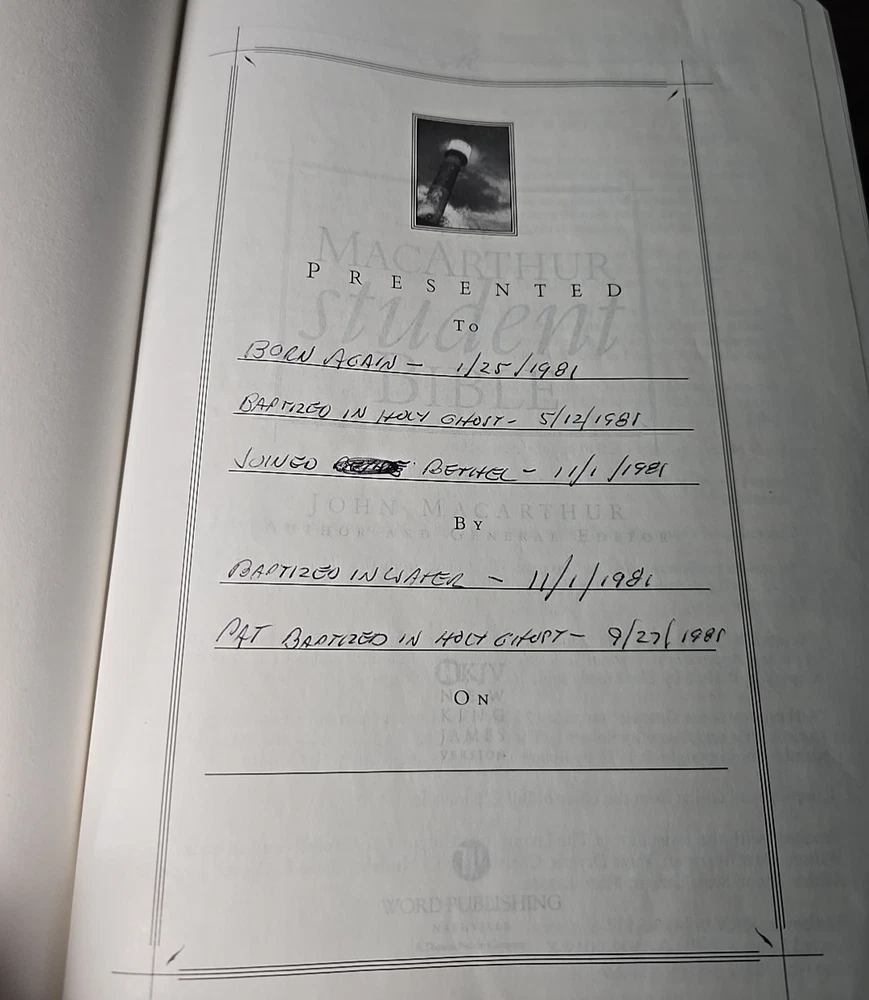 MACARTHUR
PRESENTED
student
To
BORN AGAIN - 1/25/1981
BIBLE
BAPTIZED IN HOLY GHOST - 5/12/1981
JOINED BETHEL - 11/1/1981
JOHN MACARTHUR
BY
AUTHOR AND GENERAL EDITOR
BAPTIZED IN WATER - 11/1/1981
PAT BAPTIZED IN HOLY GHOST - 9/27/1981
NKJV
ON
NEW
KING
JAMES
VERSION
WORD PUBLISHING
NASHVILLE
A Thomas Nelson Company